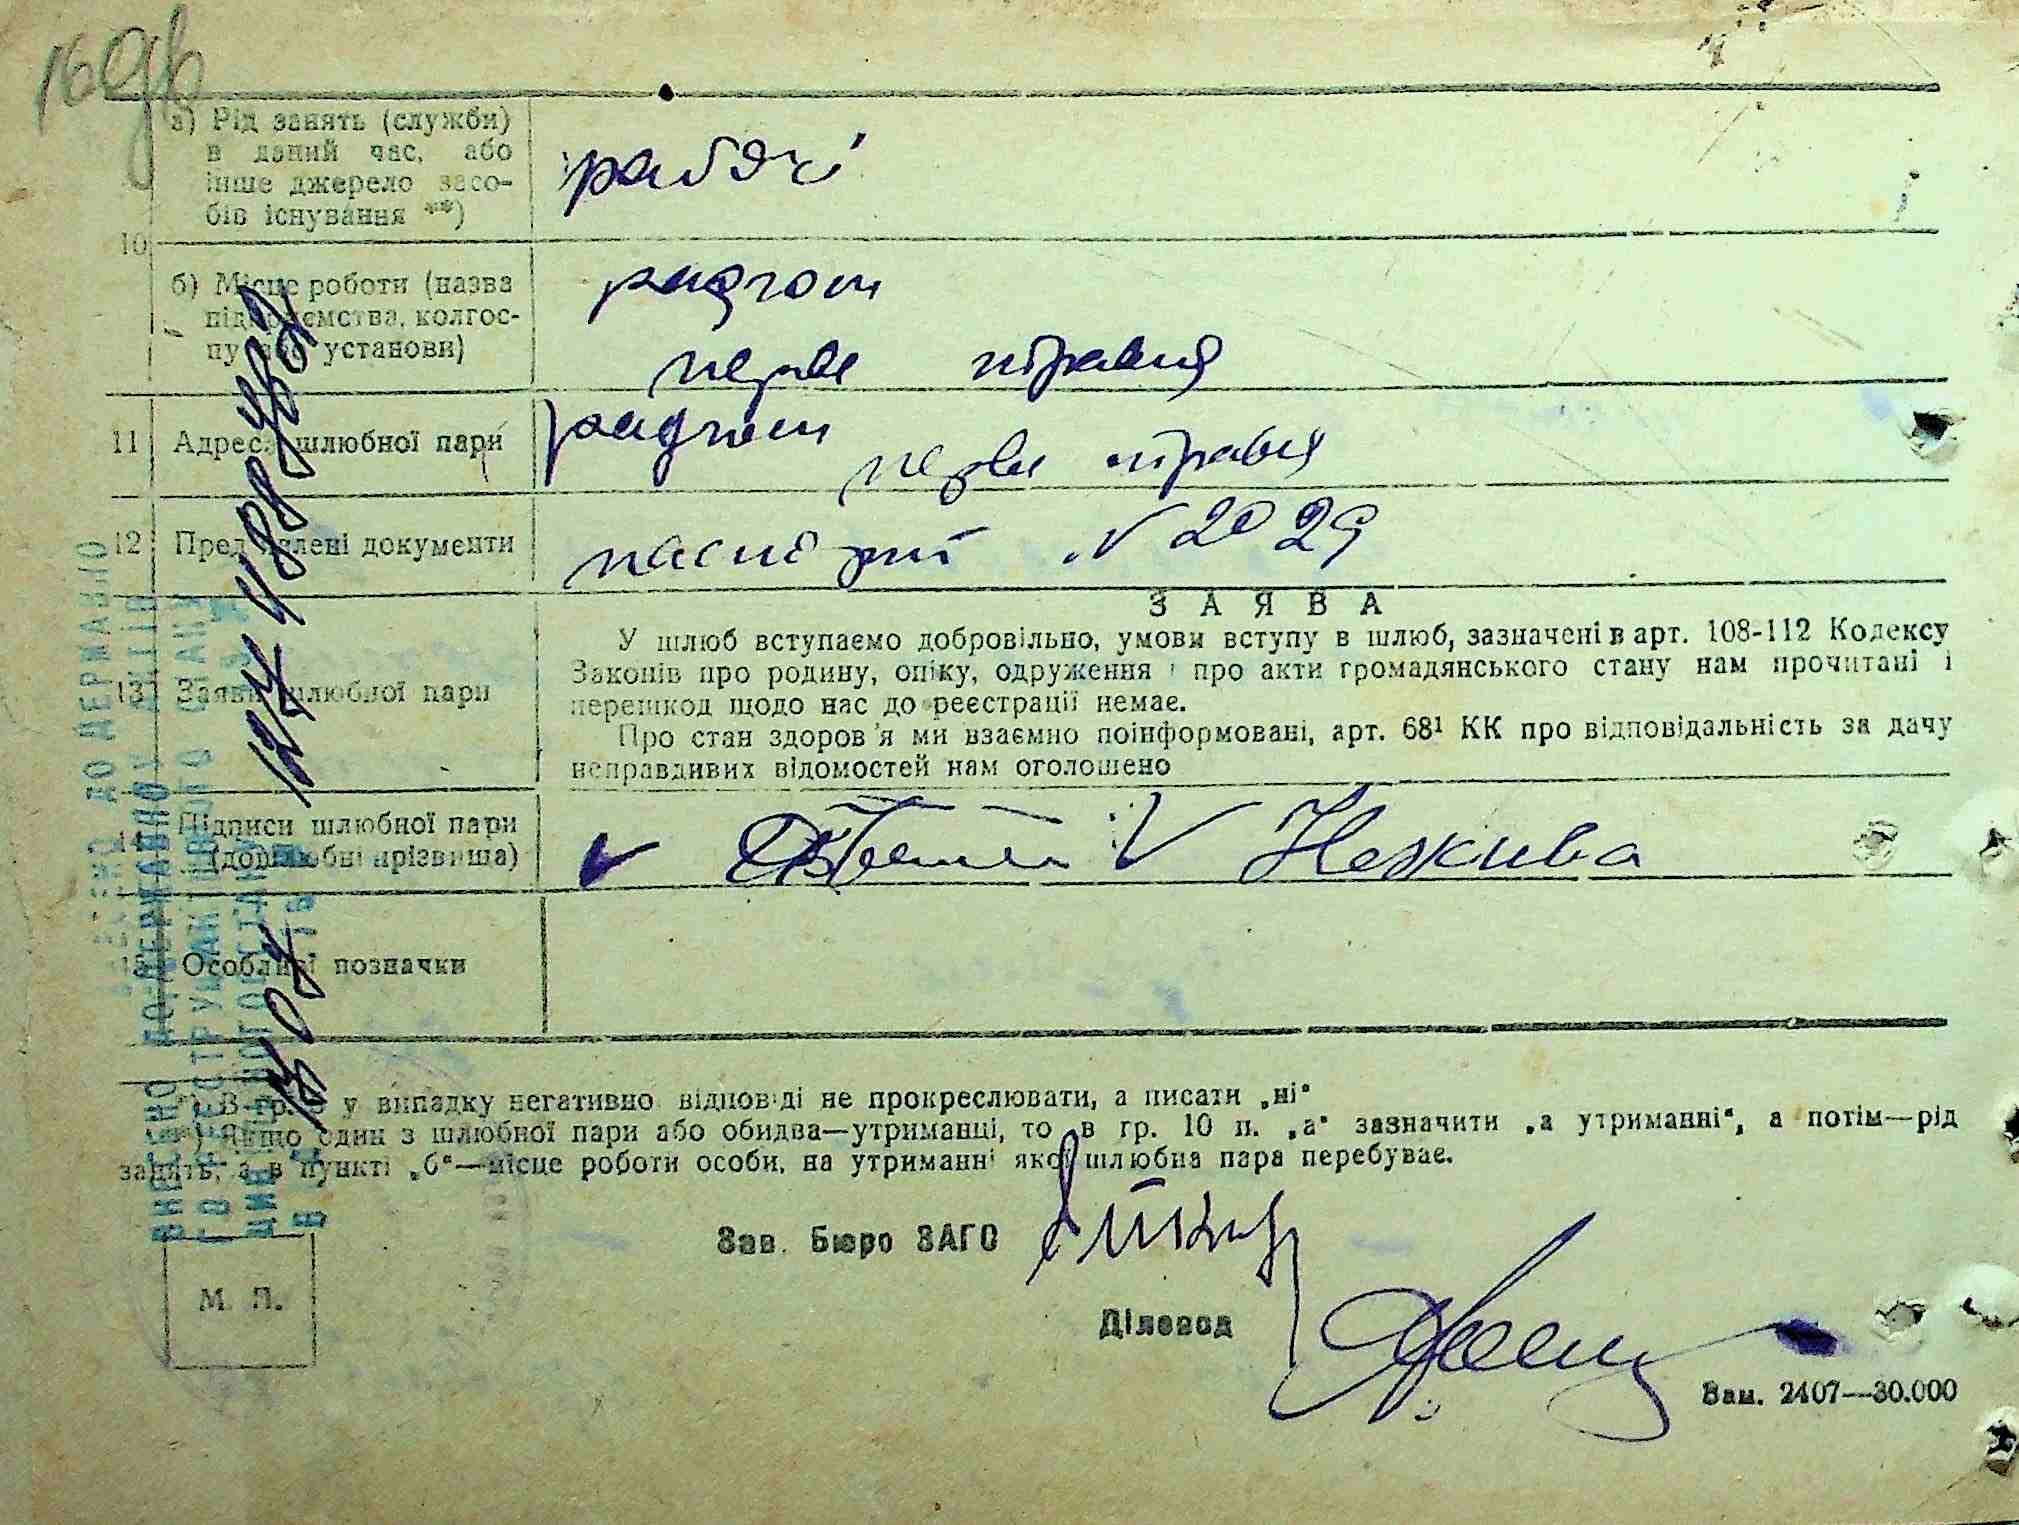 169б
а) Рід занять (служби)
в даний час, або
інше джерело засо-
бів існування **)
рабочі
10
б) Місце роботи (назва
підприємства, колгос-
пу або установи)
радгосп
перве травня
11 Адреса шлюбної пари
радгосп
перве травня
12 Пред'явлені документи
паспорти № 2029
ЗАЯВА
13 Заява шлюбної пари
У шлюб вступаємо добровільно, умови вступу в шлюб, зазначені в арт. 108-112 Кодексу
Законів про родину, опіку, одруження і про акти громадянського стану нам прочитані і
перешкод щодо нас до реєстрації немає.
Про стан здоров'я ми взаємно поінформовані, арт. 68¹ КК про відповідальність за дачу
неправдивих відомостей нам оголошено
14 Підписи шлюбної пари
(дошлюбні прізвища)
V V Нежива
15 Особливі позначки
*) В гр. у випадку негативної відповіді не прокреслювати, а писати „ні“
**) Якщо один з шлюбної пари або обидва—утриманці, то в гр. 10 п. „а“ зазначити „а утриманні“, а потім—рід
занять, а в пункті „б“—місце роботи особи, на утриманні якої шлюбна пара перебуває.
Зав. Бюро ЗАГС
М. П.
Діловод
Зам. 2407—30.000
ВНЕСЕНО ДО ДЕРЖАВНО
ГО РЕЄСТРУ АКТІВ
ЦИВІЛЬНОГО СТАНУ